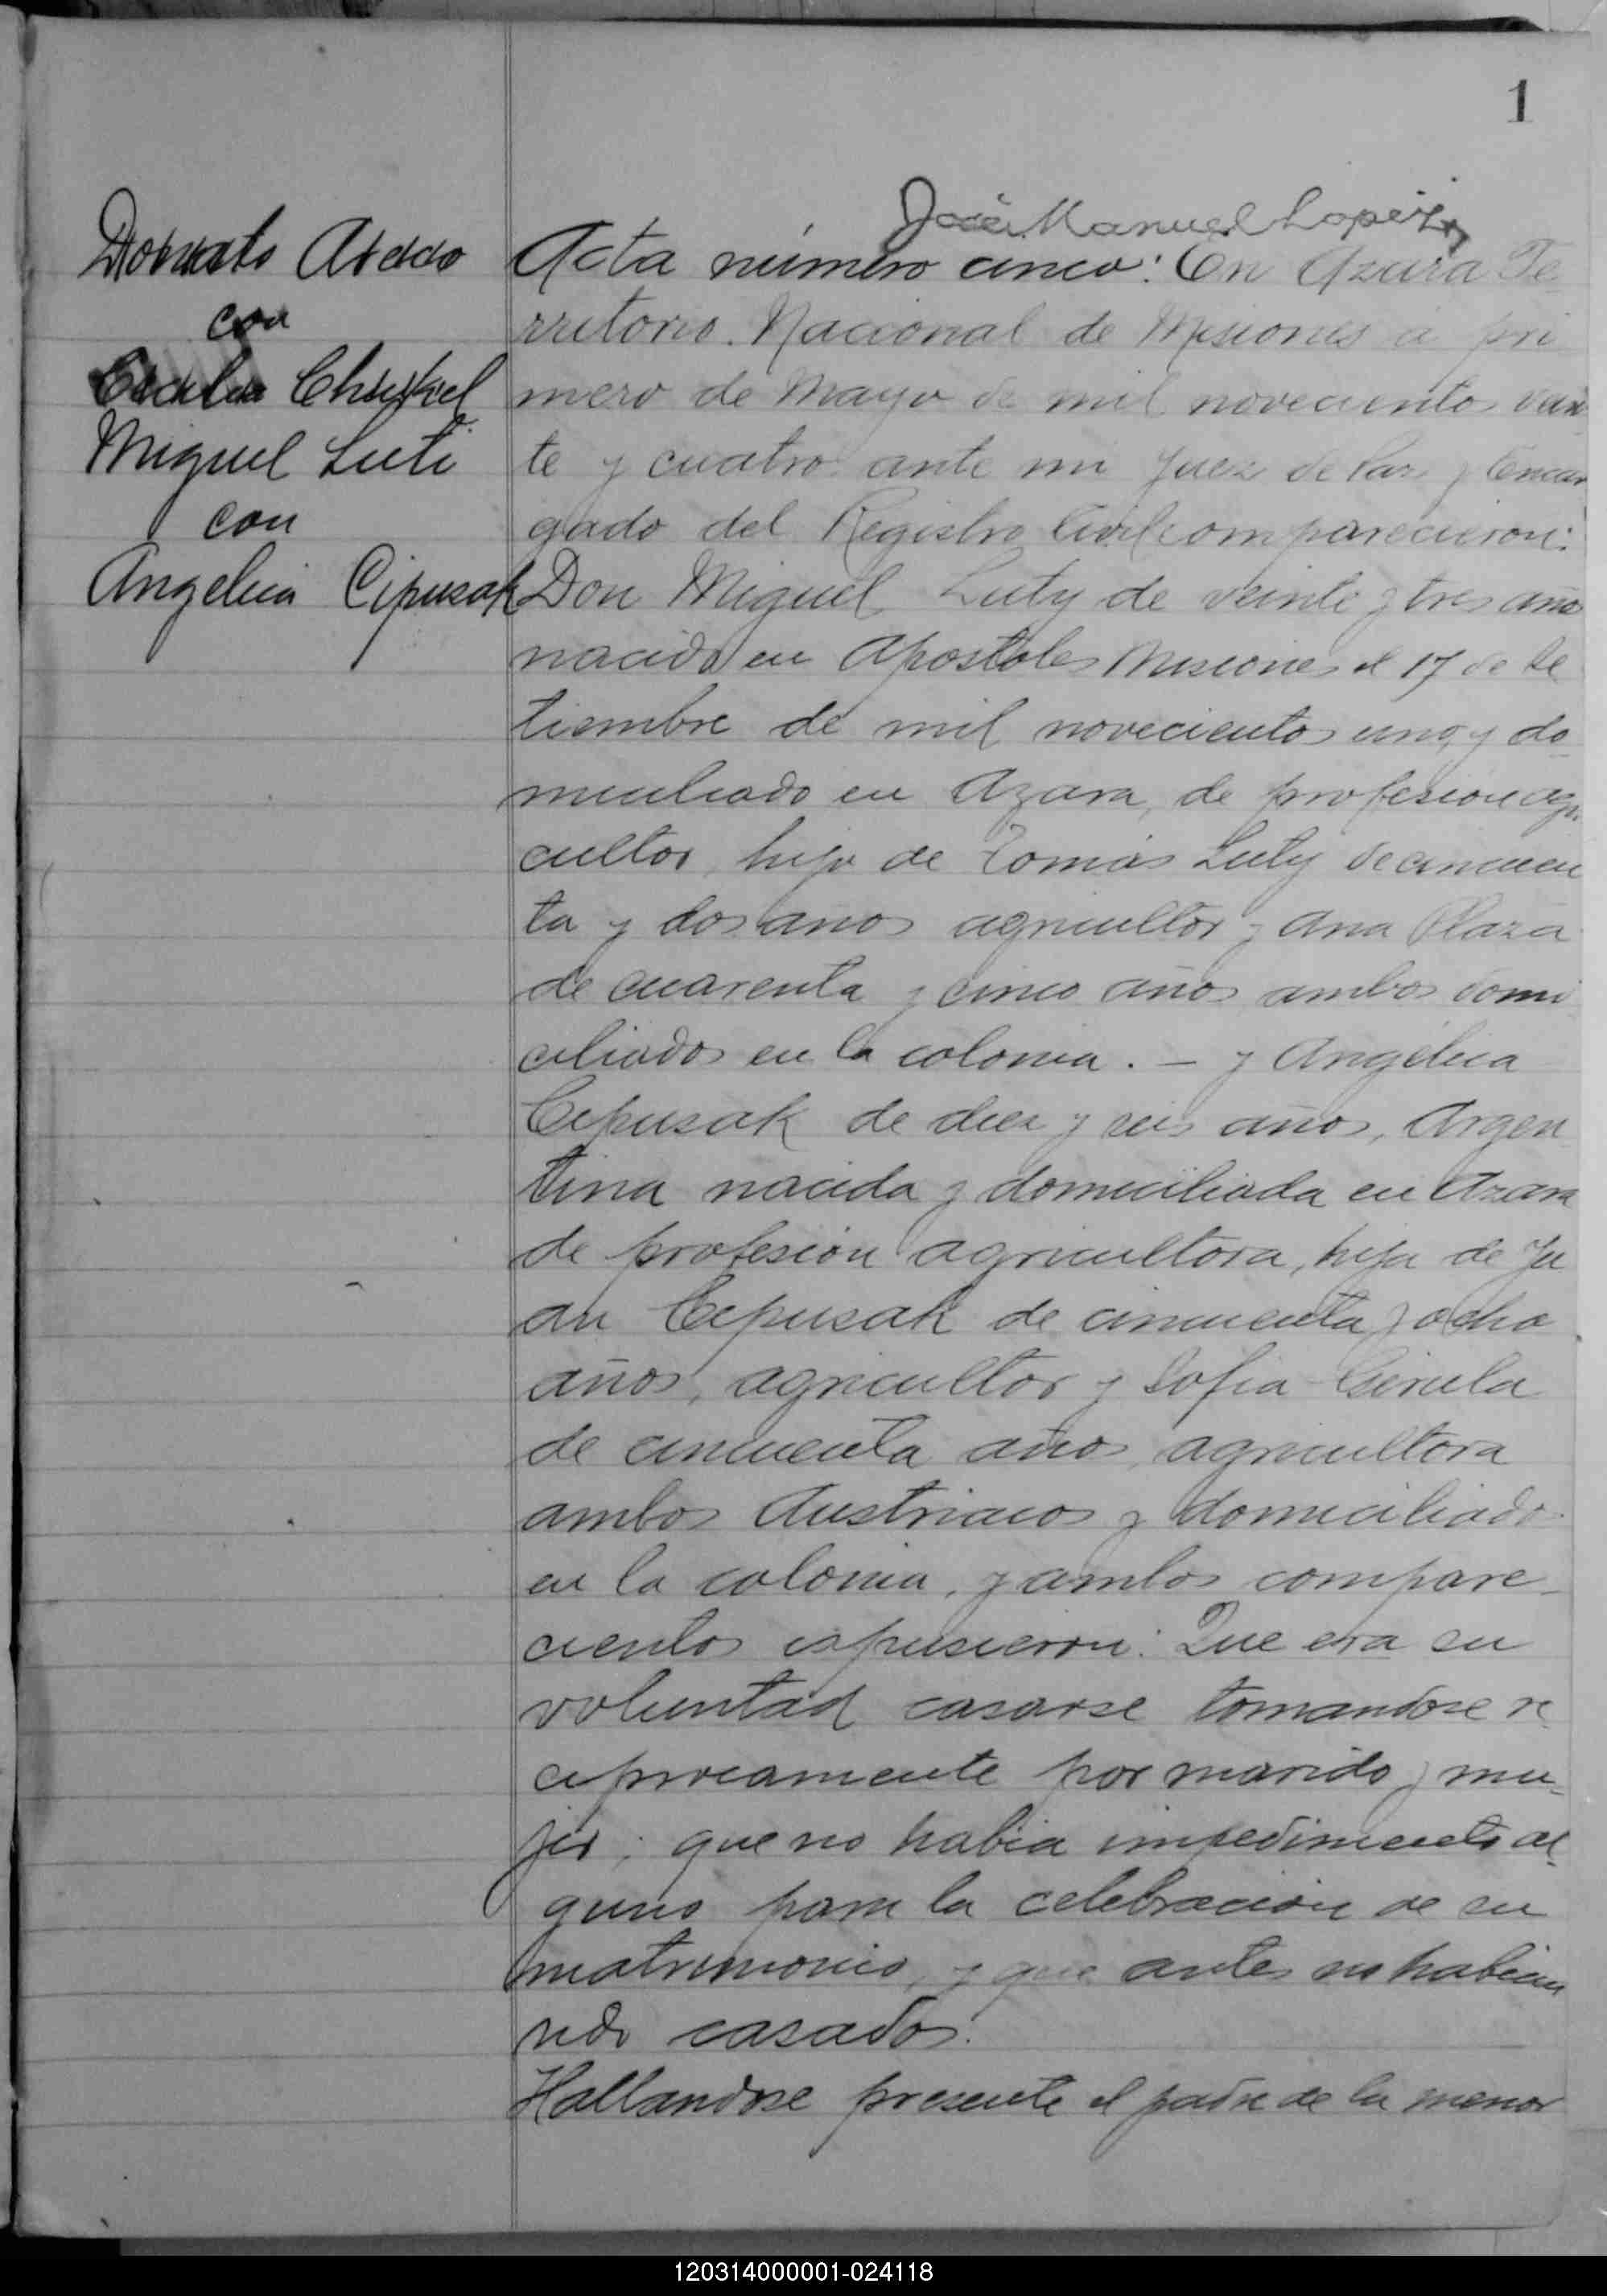 1
José Manuel Lopez
Donato
con
Miguel Luti
con
Angelica Cipusak
Acta número cinco: En Azara Te
rritorio Nacional de Misiones a pri
mero de Mayo de mil novecientos vein
te y cuatro ante mi Juez de Paz y Encar
gado del Registro Civil comparecieron:
Don Miguel Luty de veinte y tres años
nacido en Apostoles Misiones el 17 de Se
tiembre de mil novecientos uno, y do
miciliado en Azara, de profesion agri
cultor, hijo de Tomás Luty de cincuen
ta y dos años agricultor y Ana Plaza
de cuarenta y cinco años ambos domi
ciliados en la colonia. — y Angélica
Cepusak de diez y seis años, Argen
tina nacida y domiciliada en Azara
de profesión agricultora, hija de Ju
an Cepusak de cincuenta y ocho
años, agricultor y Sofia
de cincuenta años, agricultora
ambos Austriacos y domiciliados
en la colonia, y ambos compare
cientos espusieron: Que era su
voluntad casarse tomandose re
ciprocamente por marido y mu-
jer; que no habia impedimento al
guno para la celebración de su
matrimonio, y que antes no habian
sido casados.
Hallandose presente el padre de la menor
120314000001-024118